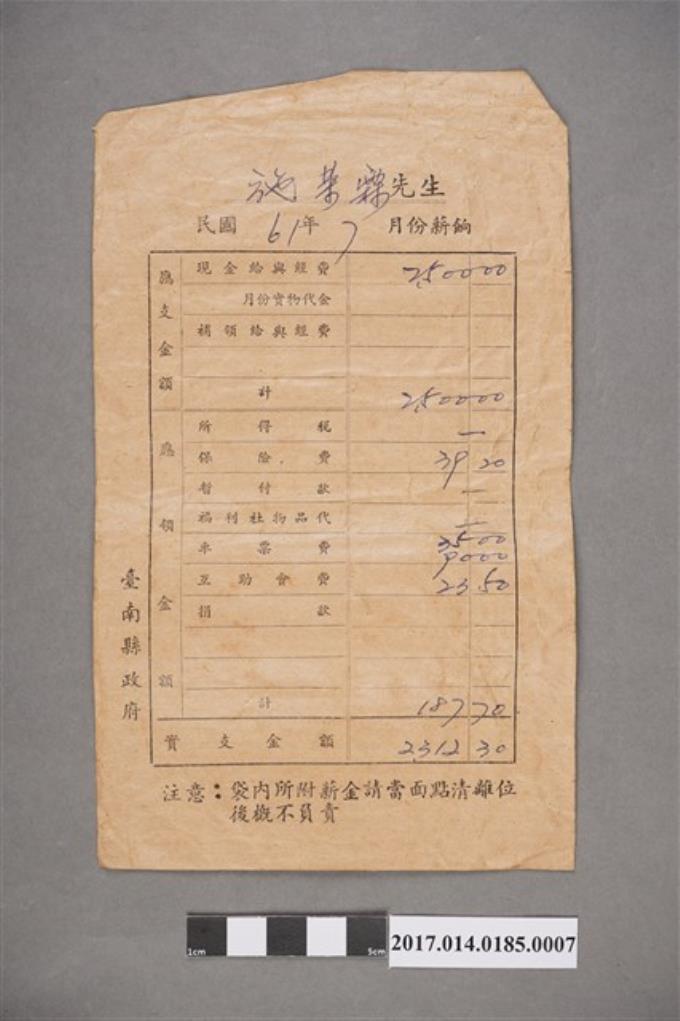 先生
民國 61年 7 月份薪餉
應支金額
現金給與經費 250000
月份實物代金
補領給與經費
計 250000
應領金額
所得稅 —
保險費 39 20
暫付款 —
福利社物品代 —
車票費 3500
9000
互助會費 23 50
捐款
計 187 70
實支金額 2312 30
臺南縣政府
注意：袋內所附薪金請當面點清離位
後概不負責
1cm 5cm
2017.014.0185.0007